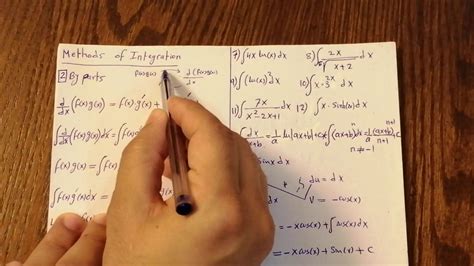 Methods of Integration
2 By parts
f(x)g(x) d(f(x)g(x))
dx
d/dx (f(x)g(x)) = f(x) g'(x) +
∫ d/dx (f(x)g(x)) = ∫f(x)
f(x)g(x) = ∫f(x)
∫f(x) g'(x) dx = f(x)
7) ∫4x ln(x) dx 8) ∫ 2x / √(x+2) dx
9) ∫(ln(x))² dx 10) ∫x·3ˣ dx
11) ∫ 7x / (x²-2x+1) 12) ∫x·sinh(x) dx
∫ dx/(ax+b) = 1/a ln|ax+b| + c ∫(ax+b)ⁿ dx = 1/a (ax+b)ⁿ⁺¹/(n+1) + c
n ≠ -1
sinx dx
+ ∫ du = dx
V = -cos(x)
= -x cos(x) + ∫cos(x) dx
= -x cos(x) + sin(x) + C